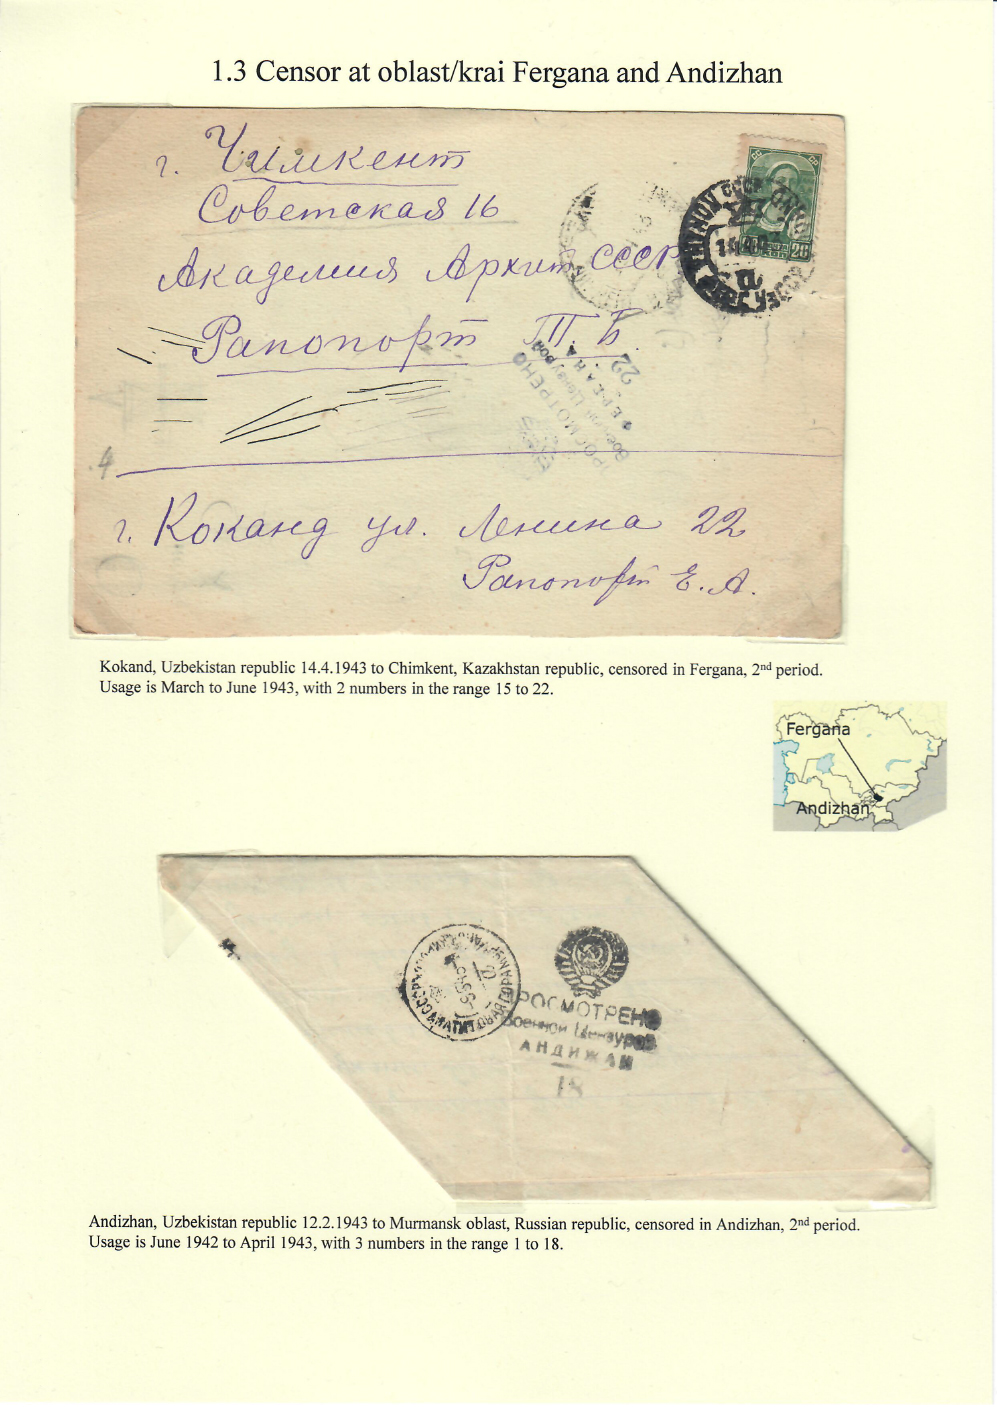 1.3 Censor at oblast/krai Fergana and Andizhan
г. Чимкент
Советская 16
Академия Архит СССР
Рапопорт Т. Б.
ПРОСМОТРЕНО
Военной Цензурой
ФЕРГАНА
22
4
г. Коканд ул. Ленина 22
Рапопорт Е. А.
Kokand, Uzbekistan republic 14.4.1943 to Chimkent, Kazakhstan republic, censored in Fergana, 2nd period.
Usage is March to June 1943, with 2 numbers in the range 15 to 22.
Fergana
Andizhan
РОСМОТРЕНО
Военной Цензурой
АНДИЖАН
18
Andizhan, Uzbekistan republic 12.2.1943 to Murmansk oblast, Russian republic, censored in Andizhan, 2nd period.
Usage is June 1942 to April 1943, with 3 numbers in the range 1 to 18.